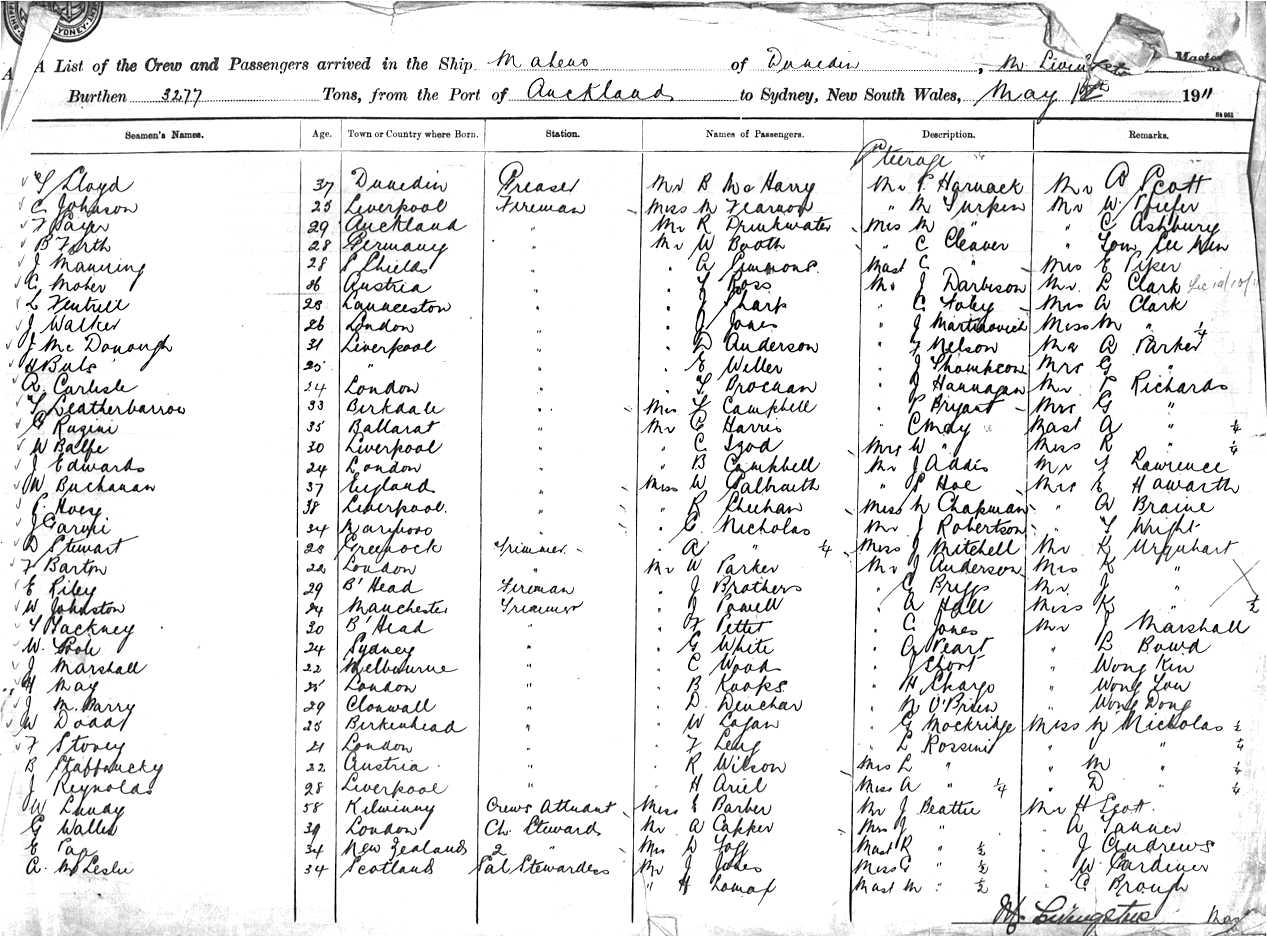 SYDNEY
A List of the Crew and Passengers arrived in the Ship Maheno of Dunedin, Master
Burthen 3277 Tons, from the Port of Auckland to Sydney, New South Wales, May 1911
Seamen's Names. Age. Town or Country where Born. Station. Names of Passengers. Description. Remarks.
Steerage
Lloyd 37 Dunedin Greaser Mr B McHarry Mr P Harnack Mr A Scott
C Johnson 25 Liverpool Fireman Miss M Vearnon " M Turpin Mr W Pfeifer
F Sayer 29 Auckland " Mr R Drinkwater Mrs M " " C Ashbury
B Forth 28 Germany " Mr W Booth " C Cleaver " Tom Lee Wen
J Manning 28 S Shields " " A Simmons Mast C " Mrs E Piper
C Moher 26 Austria " Ross Mr J Darbison Mr L Clark
L Ventrell 28 Launceston " J Sharp " C Foley Mrs A Clark
J Walker 26 London " J Jones " J Martinovich Miss M " ¼
J McDonough 31 Liverpool " D Anderson " F Nelson Mr A Parker
H Buls 25 " " E Weller " J Thompson Mrs G "
A Carlisle 24 London " Brocman Hannagan Mr P Richards
Leatherbarrow 33 Birkdale " Campbell " P Bryant Mrs G "
Rugini 35 Ballarat " Mr C Harris " Cmdy Mast A " ¼
W Balfe 30 Liverpool " " C Izod Mrs W " Miss R " ¼
J Edwards 24 London " " B Campbell Mr J Addis Mr Lawrence
W Buchanan 37 England " Miss W Galbraith " P Hoe Mrs E Haworth
P Hoey 38 Liverpool " " R Sheehan Miss N Chapman " A Braine
J 34 " " C Nicholas Mr J Robertson " Wright
D Stewart 28 Greenock Trimmer " A " ¼ Miss J Mitchell Mr K Urquhart
F Barton 22 London " Mr W Parker Mr J Anderson Mrs K "
E Riley 29 B'Head Fireman " J Brothers " C Briggs Mr J "
W Johnston 24 Manchester Trimmer " J Powell " A Hall Miss K " ½
Hackney 30 B'Head " " F Pettet " C Jones Mr J Marshall
W Poole 24 Sydney " " G White " A Peart " L Bowd
J Marshall 22 Melbourne " " C Wood " J Short " Wong Kin
H May 25 London " " B Koops " H Chargo " Wong You
J McMarry 29 Clonwall " " D Deuchar " N O'Brien " Wong Dong
W Dodd 25 Birkenhead " " W Logan " G Mockridge Miss N Nicholas ½
F Stoney 21 London " " F Leng " L Rossini " J " ¼
B 22 Austria " " R Wilson Mrs L " " M " ¼
J Reynolds 28 Liverpool " " H Ariel Miss A " ¼ " D " ¼
W Lundy 58 Kilwinny Crews Attdant Miss E Barber Mr J Beattie Mr H Scott
G Waller 39 London Ch. Steward Mr A Capper Mrs J " " A Tanner
E 34 New Zealand 2 " Mrs L Mast R " ½ " J Andrews
A. McLeslie 34 Scotland Sal Stewardess Mr J Jones Miss G " ½ " W Gardiner
" H Lomax Mast M " ½ " C Brough
Livingstone